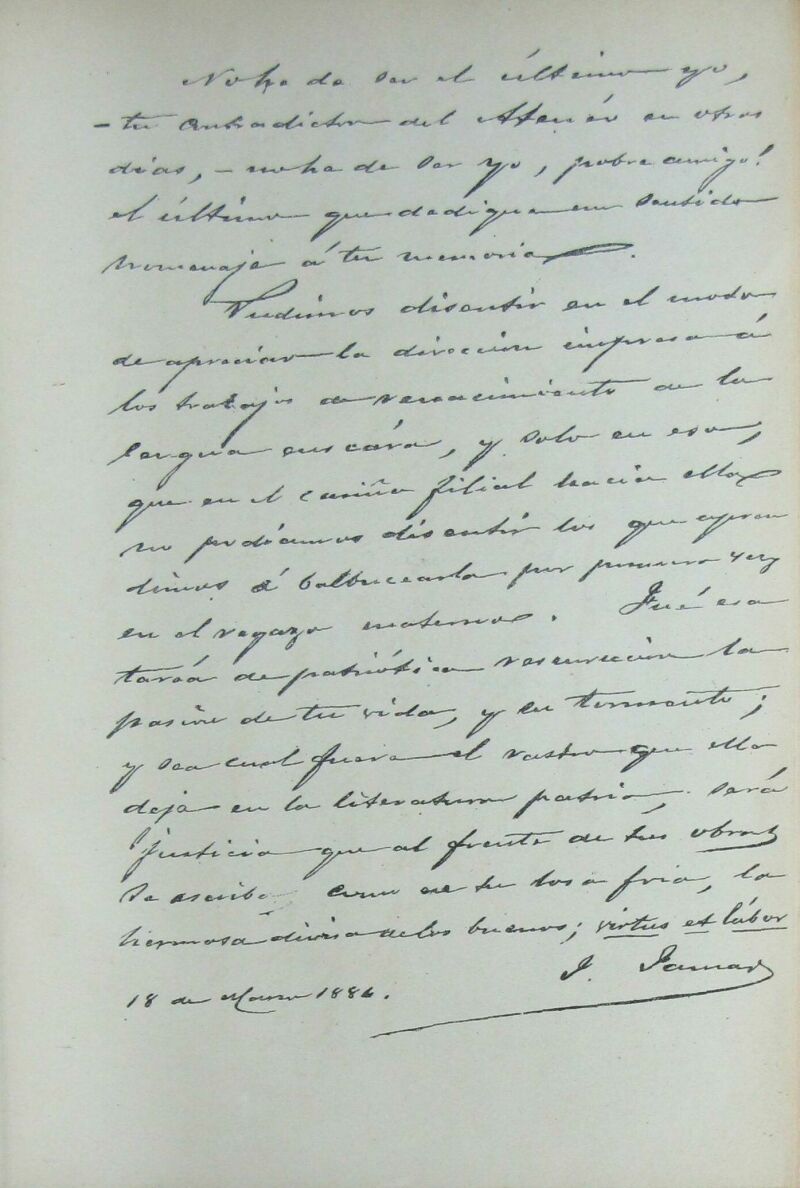 No he de ser el último yo,
- tu contradictor del Ateneo en otros
dias, - no ha de ser yo, pobre amigo!
el último que dedique un sentido
homenaje á tu memoria.
Pudimos discutir en el modo
de apreciar la direccion impresa á
los trabajos de renacimiento de la
lengua euscára, y solo en eso,
que en el cariño filial hacia ella
no podíamos discutir los que apren
dimos á balbucearla por primera vez
en el regazo materno. Fué esa
taréa de patriótica resurreccion la
pasion de tu vida, y su tormento;
y sea cual fuere el rastro que ella
deje en la literatura patria, será
justicia que al frente de tus obras
se escriba como en tu losa fria, la
hermosa divisa de los buenos; virtus et lábor
J. Jamar
18 de Marzo 1886.